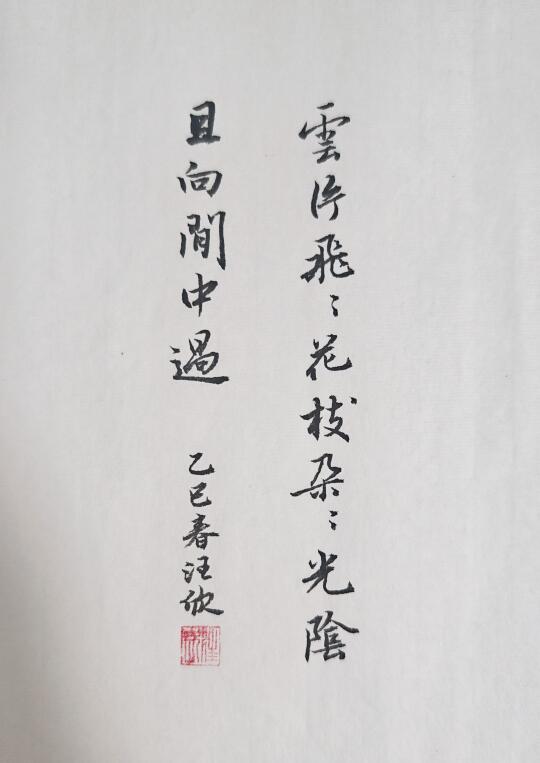 雲片飛〻花枝朶〻光陰
且向閒中過
乙巳春汪欣